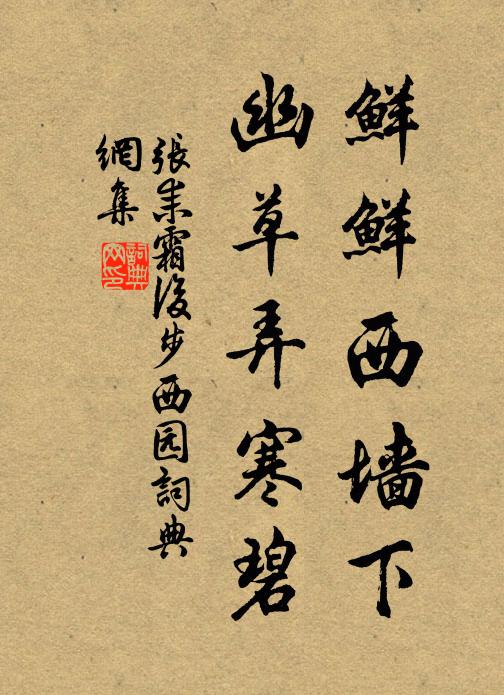 鮮鮮西墙下
幽草弄寒碧
張耒霜後步西园詞典
網集
詞典
网印